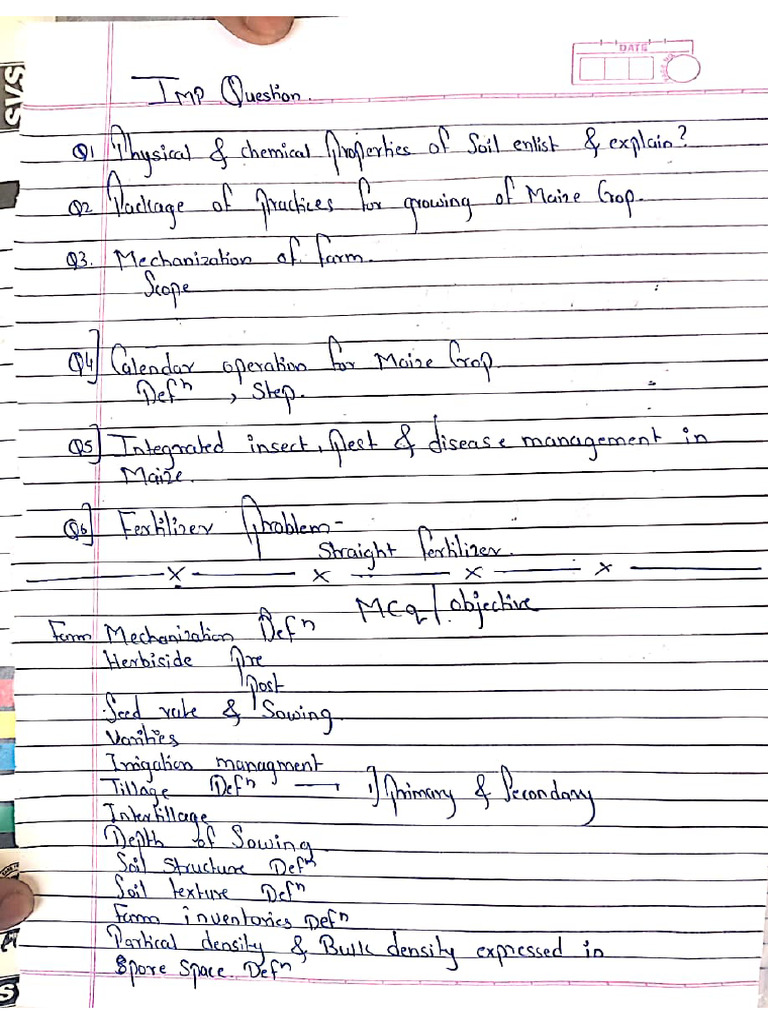 DATE
Imp Question.
Q1 Physical & chemical Properties of Soil enlist & explain?
Q2 Package of Practices for growing of Maize Crop.
Q3. Mechanization of farm.
Scope
Q4] Calendar operation for Maize Crop
Defⁿ, Step.
Q5] Integrated insect, pest & disease management in
Maize.
Q6] Fertilizer Problem-
Straight fertilizer.
x x x x
MCq / objective
Farm Mechanization Defⁿ
Herbiside Pre
Post
Seed rate & Sowing.
Varities
Irrigation managment
Tillage Defⁿ → 1] Primary & Secondary
Intertillage
Depth of Sowing.
Soil structure Defⁿ
Soil texture Defⁿ
Farm inventories Defⁿ
Partical density & Bulk density expressed in
Spore Space. Defⁿ